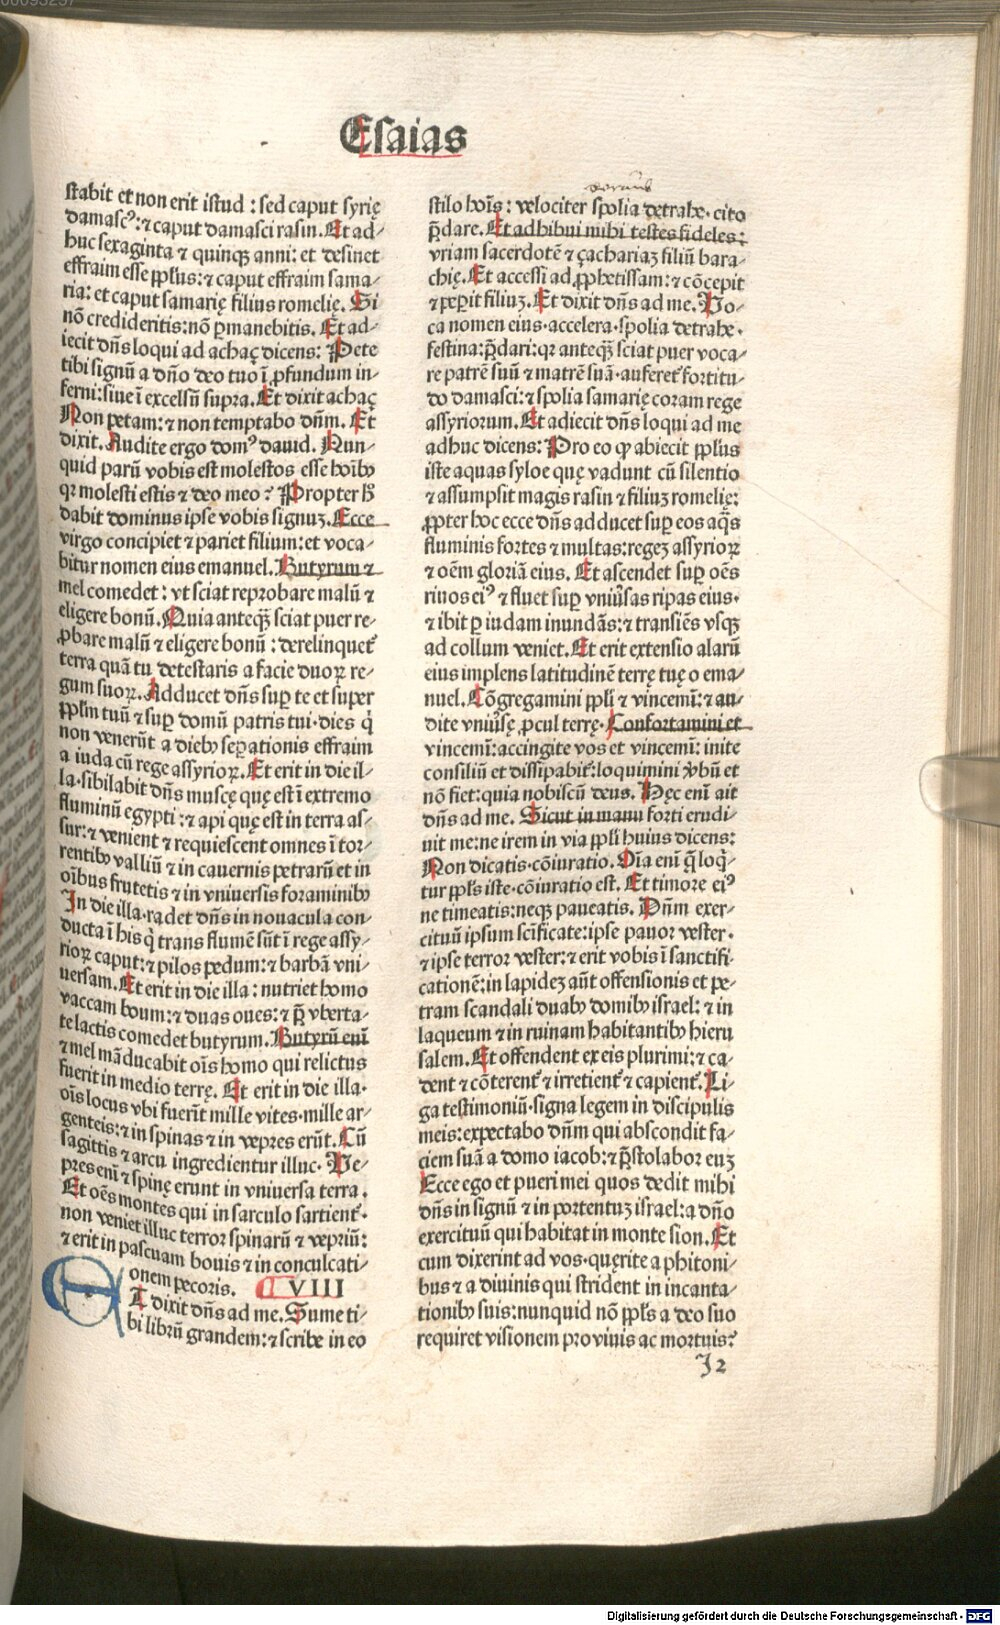 Esaias
stabit et non erit istud : sed caput syrię
damascꝰ: ⁊ caput damasci rasin. Et ad⸗
huc sexaginta ⁊ quinqꝫ anni: et desinet
effraim esse pp̄lus: ⁊ caput effraim sama⸗
ria: et caput samarię filius romelię. Si
nō credideritis: nō ꝑmanebitis. Et ad⸗
iecit dn̄s loqui ad achaç dicens: Pete
tibi signū a dn̄o deo tuo ī ꝓfundum in⸗
ferni: siue ī excelsū supra. Et dixit achaç
Non petam: ⁊ non temptabo dn̄m. Et
dixit. Audite ergo domꝰ dauid. Nun⸗
quid parū vobis est molestos esse hoībꝰ
qꝛ molesti estis ⁊ deo meo? Propter h̄
dabit dominus ipse vobis signuꝫ. Ecce
virgo concipiet ⁊ pariet filium: et voca⸗
bitur nomen eius emanuel. Butyrum ⁊
mel comedet: vt sciat reprobare malū ⁊
eligere bonū. Quia anteqꝫ̄ sciat puer re⸗
ꝓbare malū ⁊ eligere bonū : derelinquet᷑
terra quā tu detestaris a facie duoꝝ re⸗
gum suoꝝ. Adducet dn̄s suꝑ te et super
pp̄lm tuū ⁊ suꝑ domū patris tui·dies q̇
non venerūt a diebꝰ seꝑationis effraim
a iuda cū rege assyrioꝝ. Et erit in die il⸗
la·sibilabit dn̄s muscę quę est ī extremo
fluminū egypti: ⁊ api quę est in terra as⸗
sur: ⁊ venient ⁊ requiescent omnes ī tor⸗
rentibꝰ valliū ⁊ in cauernis petrarū et in
oībus frutetis ⁊ in vniuersis foraminibꝰ
In die illa·radet dn̄s in nouacula con⸗
ducta ī his q̇ trans flumē sūt ī rege assy⸗
rioꝝ caput: ⁊ pilos pedum: ⁊ barbā vni⸗
uersam. Et erit in die illa : nutriet homo
vaccam boum: ⁊ duas oues: ⁊ p̄ vberta⸗
te lactis comedet butyrum. Butyrū enī
⁊ mel māducabit oīs homo qui relictus
fuerit in medio terrę. Et erit in die illa·
oīs locus vbi fuerīt mille vites·mille ar⸗
genteis: ⁊ in spinas ⁊ in vepres erūt. Cū
sagittis ⁊ arcu ingredientur illuc. Ve⸗
pres enī ⁊ spinę erunt in vniuersa terra.
Et oēs montes qui in sarculo sartient᷑.
non veniet illuc terror spinarū ⁊ vepriū:
⁊ erit in pascuam bouis ⁊ in conculcati⸗
onem pecoris. VIII
ET dixit dn̄s ad me. Sume ti⸗
bi librū grandem: ⁊ scribe in eo
stilo hoīs: velociter spolia detrahe· cito
p̄dare. Et adhibui mihi testes fideles:
vriam sacerdotē ⁊ çachariaꝫ filiū bara⸗
chię. Et accessi ad ꝓphetissam: ⁊ cōcepit
⁊ peꝑit filiuꝫ. Et dixit dn̄s ad me. Vo⸗
ca nomen eius·accelera·spolia detrahe·
festina: p̄dari: qꝛ anteqꝫ̄ sciat puer voca⸗
re patrē suū ⁊ matrē suā·auferet᷑ fortitu⸗
do damasci: ⁊ spolia samarię coram rege
assyriorum. Et adiecit dn̄s loqui ad me
adhuc dicens: Pro eo ꝙ abiecit pp̄lus
iste aquas syloe quę vadunt cū silentio
⁊ assumpsit magis rasin ⁊ filiuꝫ romelię:
ꝓpter hoc ecce dn̄s adducet suꝑ eos aq̄s
fluminis fortes ⁊ multas: regeꝫ assyrioꝝ
⁊ oēm gloriā eius. Et ascendet suꝑ oēs
riuos eiꝰ ⁊ fluet suꝑ vniūsas ripas eius·
⁊ ibit ꝑ iudam inundās: ⁊ transiēs vsqꝫ
ad collum veniet. Et erit extensio alarū
eius implens latitudinē terrę tuę o ema⸗
nuel. Cōgregamini pp̄li ⁊ vincemī: ⁊ au⸗
dite vniūsę ꝓcul terrę·Confortamini et
vincemī: accingite vos et vincemī: inite
consiliū et dissipabit᷑: loquimini v̄bū et
nō fiet: quia nobiscū deus. Hęc enī ait
dn̄s ad me. Sicut in manu forti erudi⸗
uit me: ne irem in via pp̄li huius dicens:
Non dicatis·cōiuratio. Oīa enī q̄ loq̇⸗
tur pp̄ls iste·cōiuratio est. Et timore eiꝰ
ne timeatis: neqꝫ paueatis. Dn̄m exer⸗
cituū ipsum scīficate: ipse pauor vester·
⁊ ipse terror vester: ⁊ erit vobis ī sanctifi⸗
cationē: in lapideꝫ aūt offensionis et pe⸗
tram scandali duabꝰ domibꝰ israel: ⁊ in
laqueum ⁊ in ruinam habitantibꝰ hieru
salem. Et offendent ex eis plurimi: ⁊ ca⸗
dent ⁊ cōterent᷑ ⁊ irretient᷑ ⁊ capient᷑. Li⸗
ga testimoniū·signa legem in discipulis
meis: expectabo dn̄m qui abscondit fa⸗
ciem suā a domo iacob: ⁊ p̄stolabor euꝫ
Ecce ego et pueri mei quos dedit mihi
dn̄s in signū ⁊ in portentuꝫ israel: a dn̄o
exercituū qui habitat in monte sion. Et
cum dixerint ad vos·quęrite a phitoni⸗
bus ⁊ a diuinis qui strident in incanta⸗
tionibꝰ suis: nunquid nō pp̄ls a deo suo
requiret visionem pro viuis ac mortuis?
J2
Digitalisierung gefördert durch die Deutsche Forschungsgemeinschaft - DFG